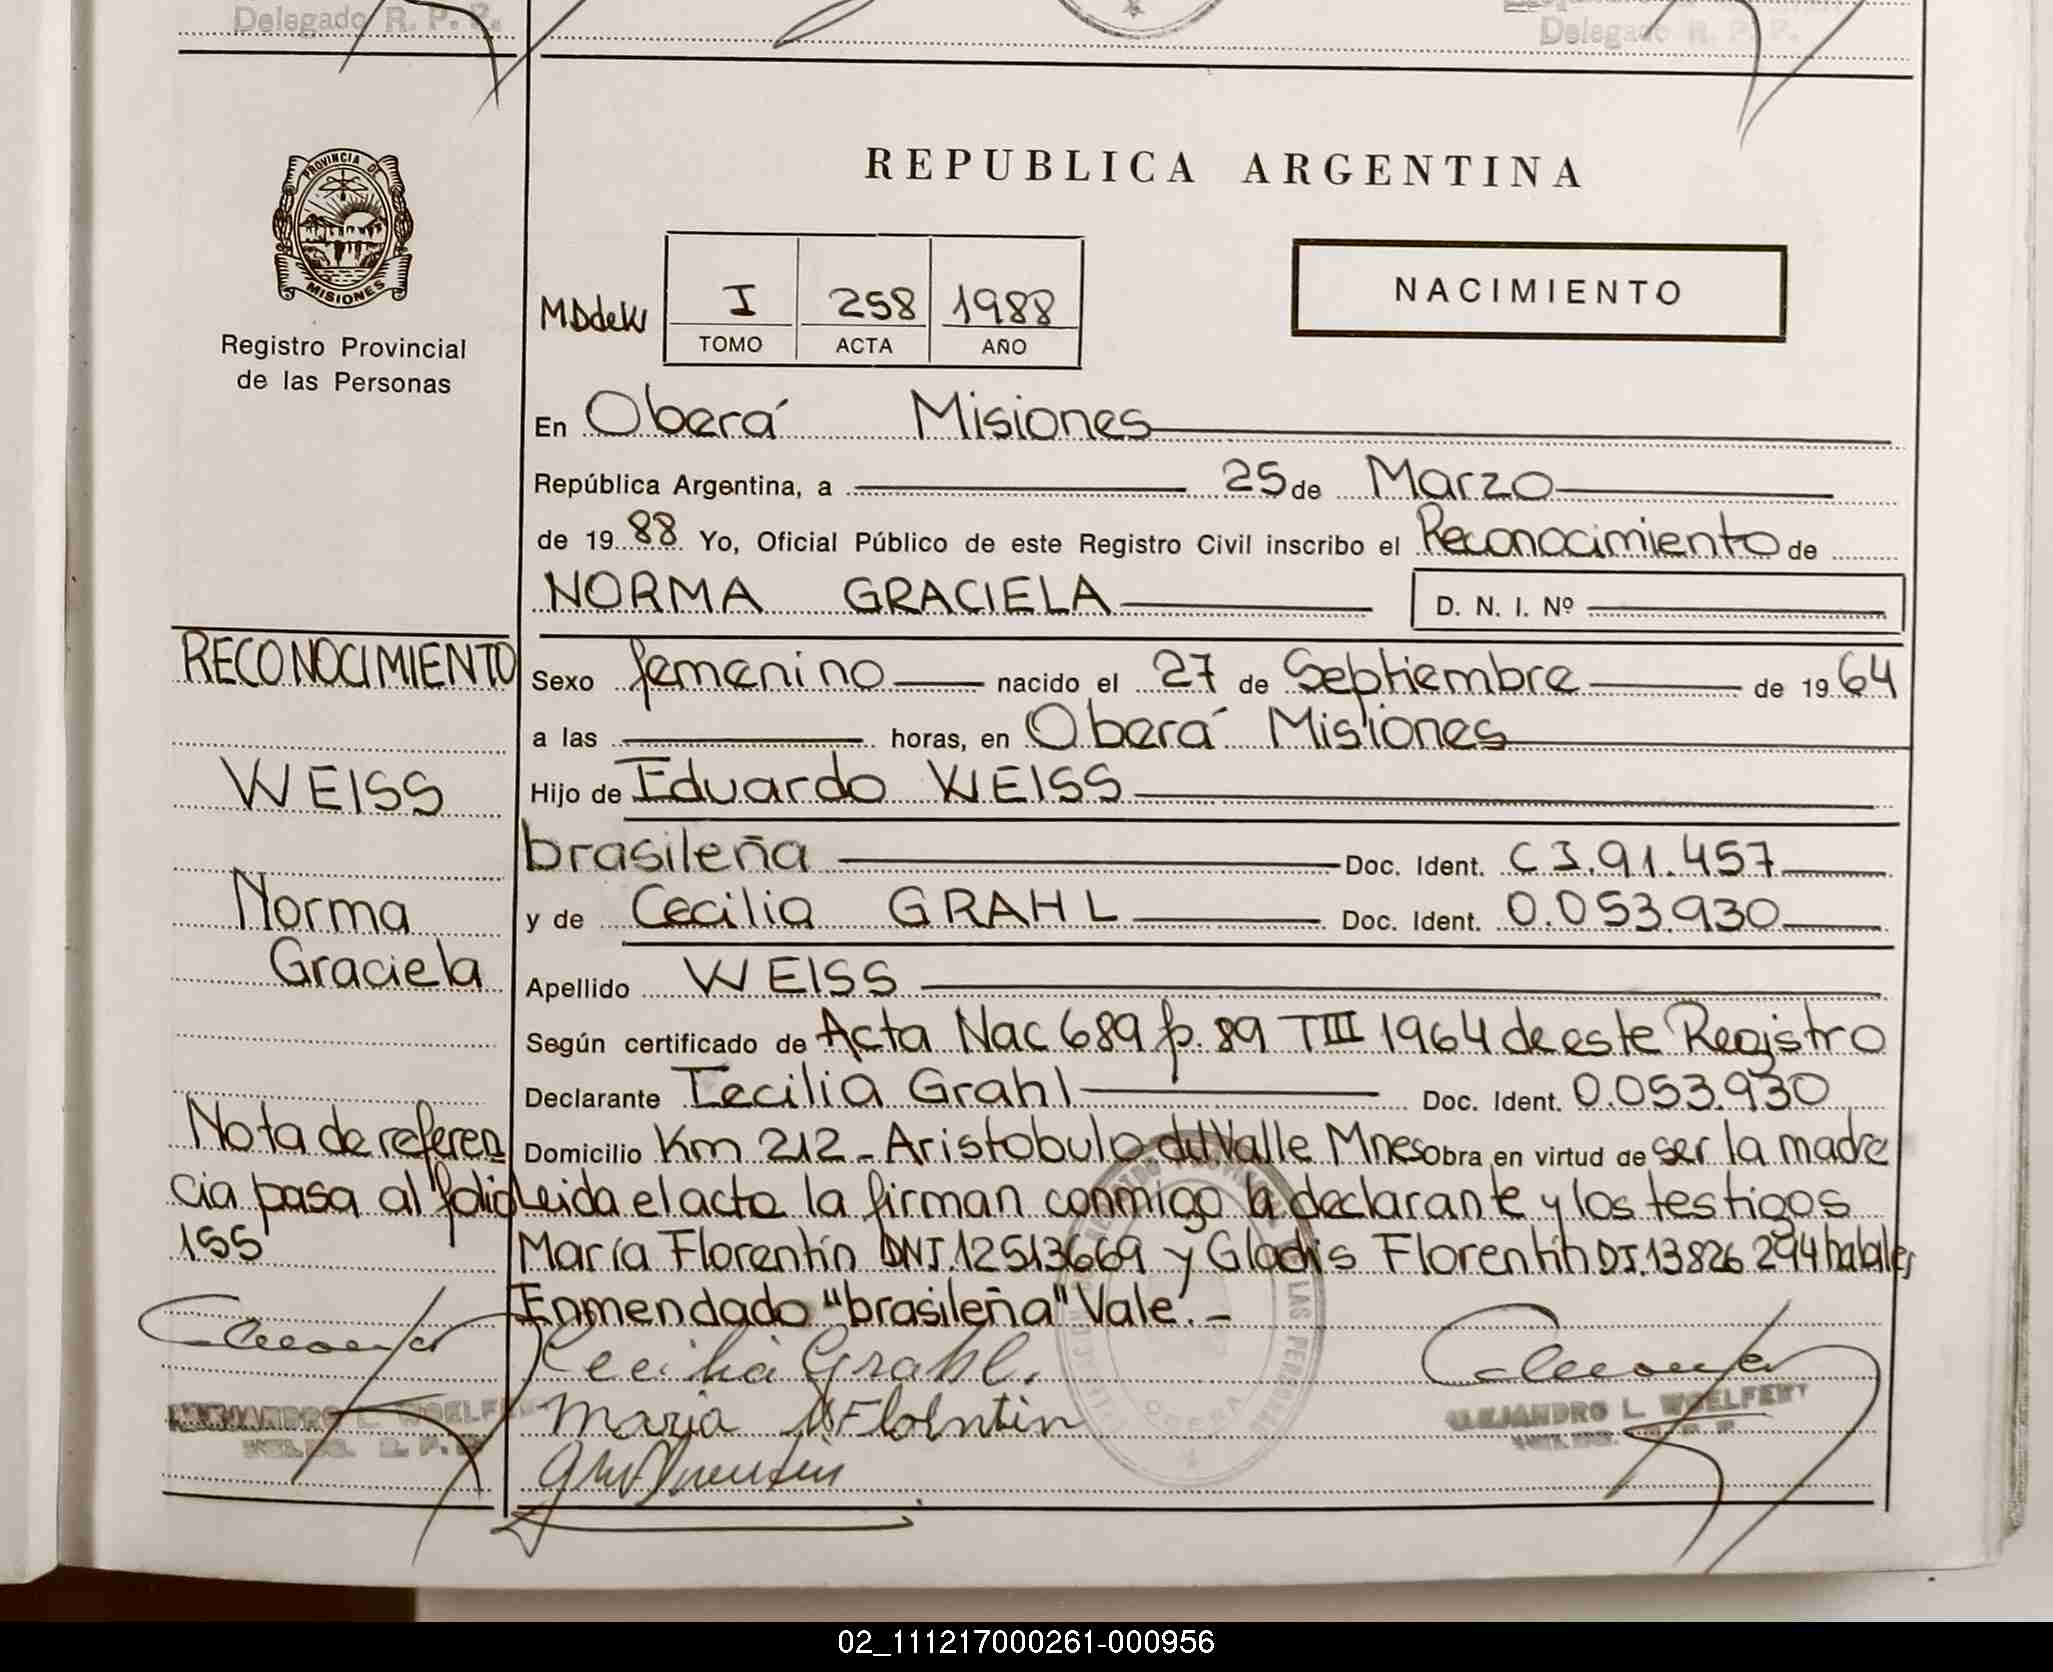 Delegado R. P. P.
Delegado R. P. P.
PROVINCIA DE
MISIONES
Registro Provincial
de las Personas
REPUBLICA ARGENTINA
MDdeW
I 258 1988
TOMO ACTA AÑO
NACIMIENTO
En Oberá Misiones
República Argentina, a 25 de Marzo
de 19 88 Yo, Oficial Público de este Registro Civil inscribo el Reconocimiento de
NORMA GRACIELA D. N. I. Nº
RECONOCIMIENTO
WEISS
Norma
Graciela
Nota de referen
cia pasa al folio
155
ALEJANDRO L. WOELFERT
Sexo femenino nacido el 27 de Septiembre de 19 64
a las horas, en Oberá Misiones
Hijo de Eduardo WEISS
brasileña Doc. Ident. C I.91.457
y de Cecilia GRAHL Doc. Ident. 0.053.930
Apellido WEISS
Según certificado de Acta Nac 689 fº. 89 TIII 1964 de este Registro
Declarante Cecilia Grahl Doc. Ident. 0.053.930
Domicilio Km 212 - Aristobulo del Valle Mnes obra en virtud de ser la madre
Leida el acta la firman conmigo la declarante y los testigos
María Florentín DNI.12513669 y Gladis Florentín DI.13826294 habiles
Enmendado "brasileña" Vale.-
Cecilia Grahl.
Maria Florentin
ALEJANDRO L. WOELFERT
02_111217000261-000956